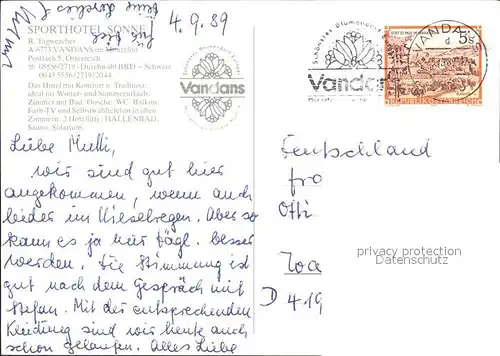 SPORTHOTEL SONNE
R. Tagwercher
A-6773 VANDANS im Montafon
Postfach 5, Österreich
05556/2719 - Durchwahl BRD - Schweiz
0043 5556/2719/2044
Das Haus mit Komfort u. Tradition:
ideal für Winter- und Sommerurlaube:
Zimmer mit Bad, Dusche, WC, Balkon,
Farb-TV und Selbstwähltelefon in allen
Zimmern. 2 Hotellifte, HALLENBAD,
Sauna, Solarium.
4.9.89
Vandans
Vandans
VANDANS
Liebe Mutti,
wir sind gut hier
angekommen, wenn auch
leider im Nieselregen. Aber so
kann es ja nur tägl. besser
werden. Die Stimmung ist
gut nach dem Gespräch mit
Stefan. Mit der entsprechenden
Kleidung sind wir heute auch
schon gelaufen. Alles Liebe
Deutschland
Otti
D 419
privacy protection
by Veikkos.com